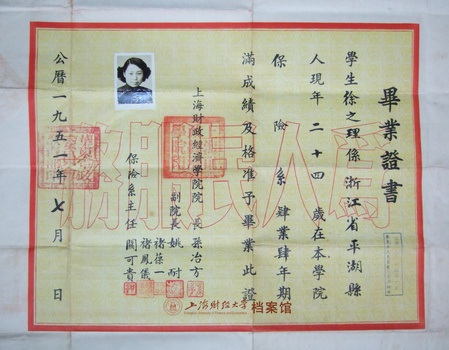 畢業證書
學生徐之理係浙江省平湖縣
人現年二十四歲在本學院
保險系肄業肆年期
滿成績及格准予畢業此證
上海財政經濟學院院長孫冶方
副院長姚耐
褚葆一
褚鳳儀
保險系主任關可貴
公曆一九五一年七月日
爲人民服務
上海财经大学档案馆